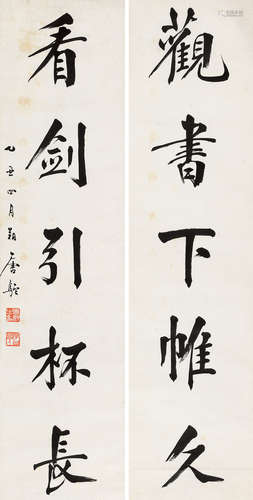 觀書下帷久
看劍引杯長
乙丑四月朔 唐駝